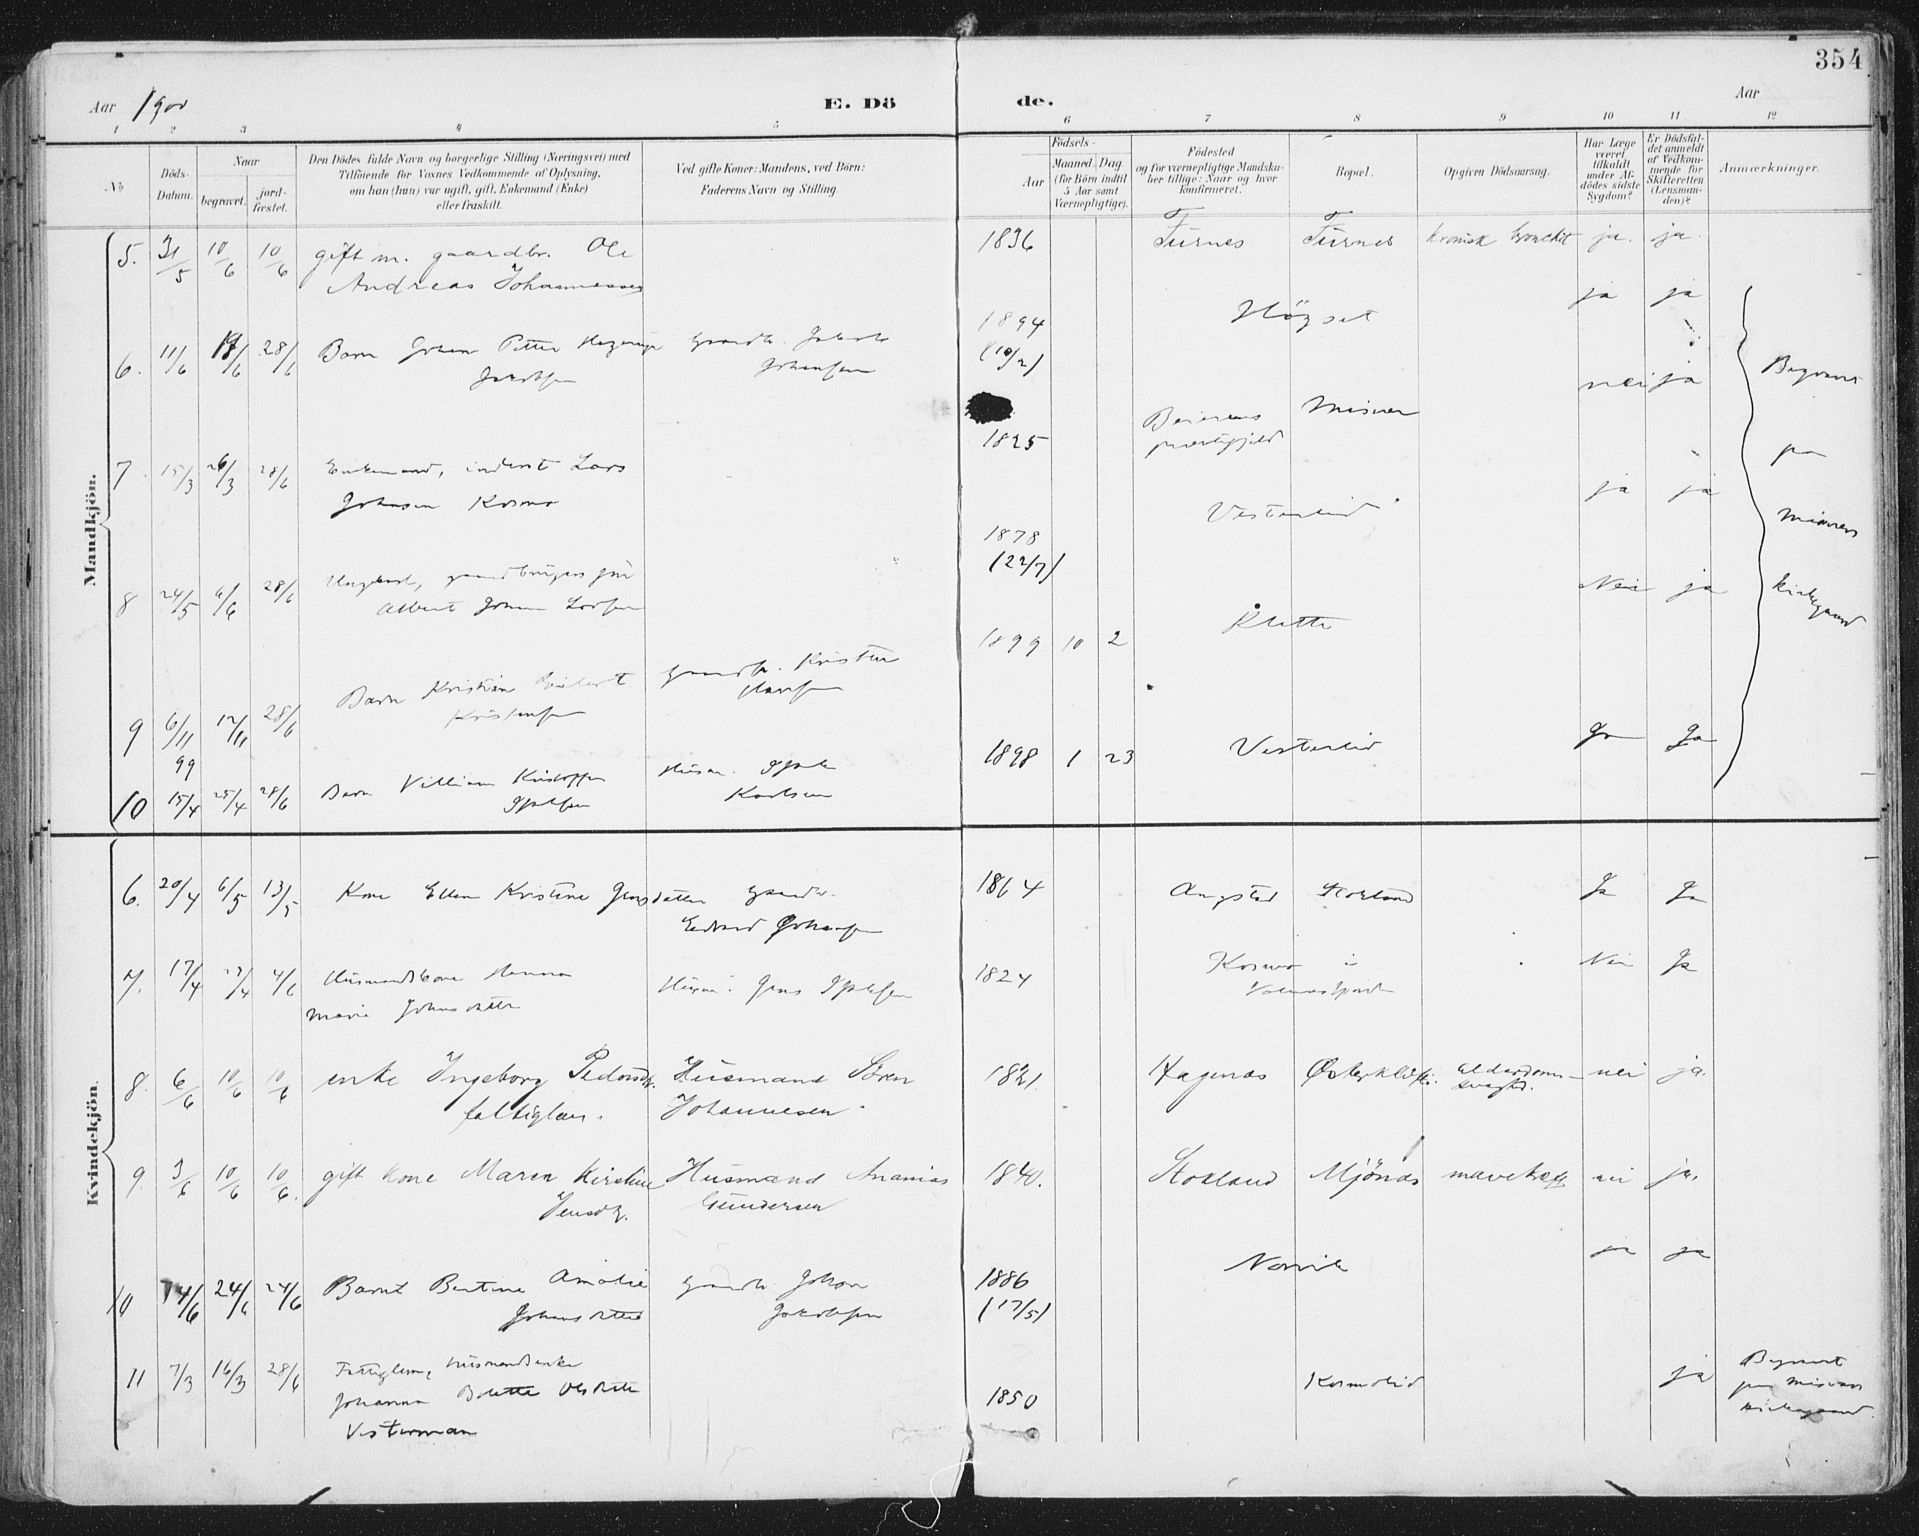 354
Aar 1900
E. Dö
de.
Aar
1 2 3 4 5 6 7 8 9 10 11 12
No
Döds-
Datum.
Naar
begravet.
jord-
fæstet.
Den Dödes fulde Navn og borgerlige Stilling (Næringsvei) med
Tilföiende for Voxnes Vedkommende af Oplysning,
om han (hun) var ugift, gift, Enkemand (Enke)
eller fraskilt.
Ved gifte Koner: Mandens, ved Börn:
Faderens Navn og Stilling.
Födsels-
Aar
Maaned. Dag.
(for Börn indtil
5 Aar samt
Værnepligtige).
Födested
og for værnepligtige Mandska-
ber tillige: Naar og hvor
konfirmeret.
Bopæl.
Opgiven Dödsaarsag.
Har Læge
været
tilkaldt
under Af-
dödes sidste
Sygdom?
Er Dödsfal-
det anmeldt
af Vedkom-
mende for
Skifteretten
(Lensman-
den)?
Anmærkninger.
Mandkjön.
5. 31/5 10/6 10/6 gift m. gaardbr. Ole 1836 Turnes Turnes kronisk bronchit ja. ja.
Andreas Johannessen
6. 11/6 28/6 Barn Johan Petter gaardb. Jakob 1894 ja ja
Jakobsen Johansen (10/2)
7. 15/3 26/3 28/6 Enkemand, inderst Lars 1825 Beierens Misvær nei ja
Johnsen Kosmo præstegjeld
8 24/5 6/6 28/6 Ungkarl, gaardbrugers sön 1878 Vesterlid ja ja
Albert Johan Larsen (22/7)
9 6/11 99 17/11 28/6 Barn Kristian gaardb. Kristen 1899 10 2 Klette Nei ja
Kristensen
10 15/4 25/4 28/6 Barn Villiam Kristoffer Husm. 1898 1 23 Vesterlid Ja Ja
Karlsen
Begravet
paa
Misvær
kirkegaard
Kvindekjön.
6. 20/4 6/5 13/5 Kone Ellen Kristine Jensdatter gaardb. 1864 Angstad Storland Ja Ja
Edvard Johansen
7. 17/4 29/4 4/6 Husmandskone Hanna Husm. Jens 1824 Kosmo i Nei Ja
Marie Johnsdatter
8. 6/6 10/6 10/6 enke Ingeborg Pedersdt. Husmand Sören 1821. Hagenæs Østerkløft. alderdoms- nei ja.
fattiglem. Johannesen. svaghed.
9. 3/6 10/6 10/6. gift kone Maren Kirstine Husmand Ananias 1840. Storland Mjönes mavekræft nei ja.
Jensdt. Gundersen
10 14/6 24/6 24/6 Barnet Bertine Amalie gaardb. Johan 1886 Norvik ja ja
Johansdatter Jakobsen (17/5)
11 7/3 16/3 28/6 Fattiglem, husmandsenke 1850 Kosmolid ja Begravet
Johanna Bolette Olsdatter paa Misvær
Vesterman kirkegaard.